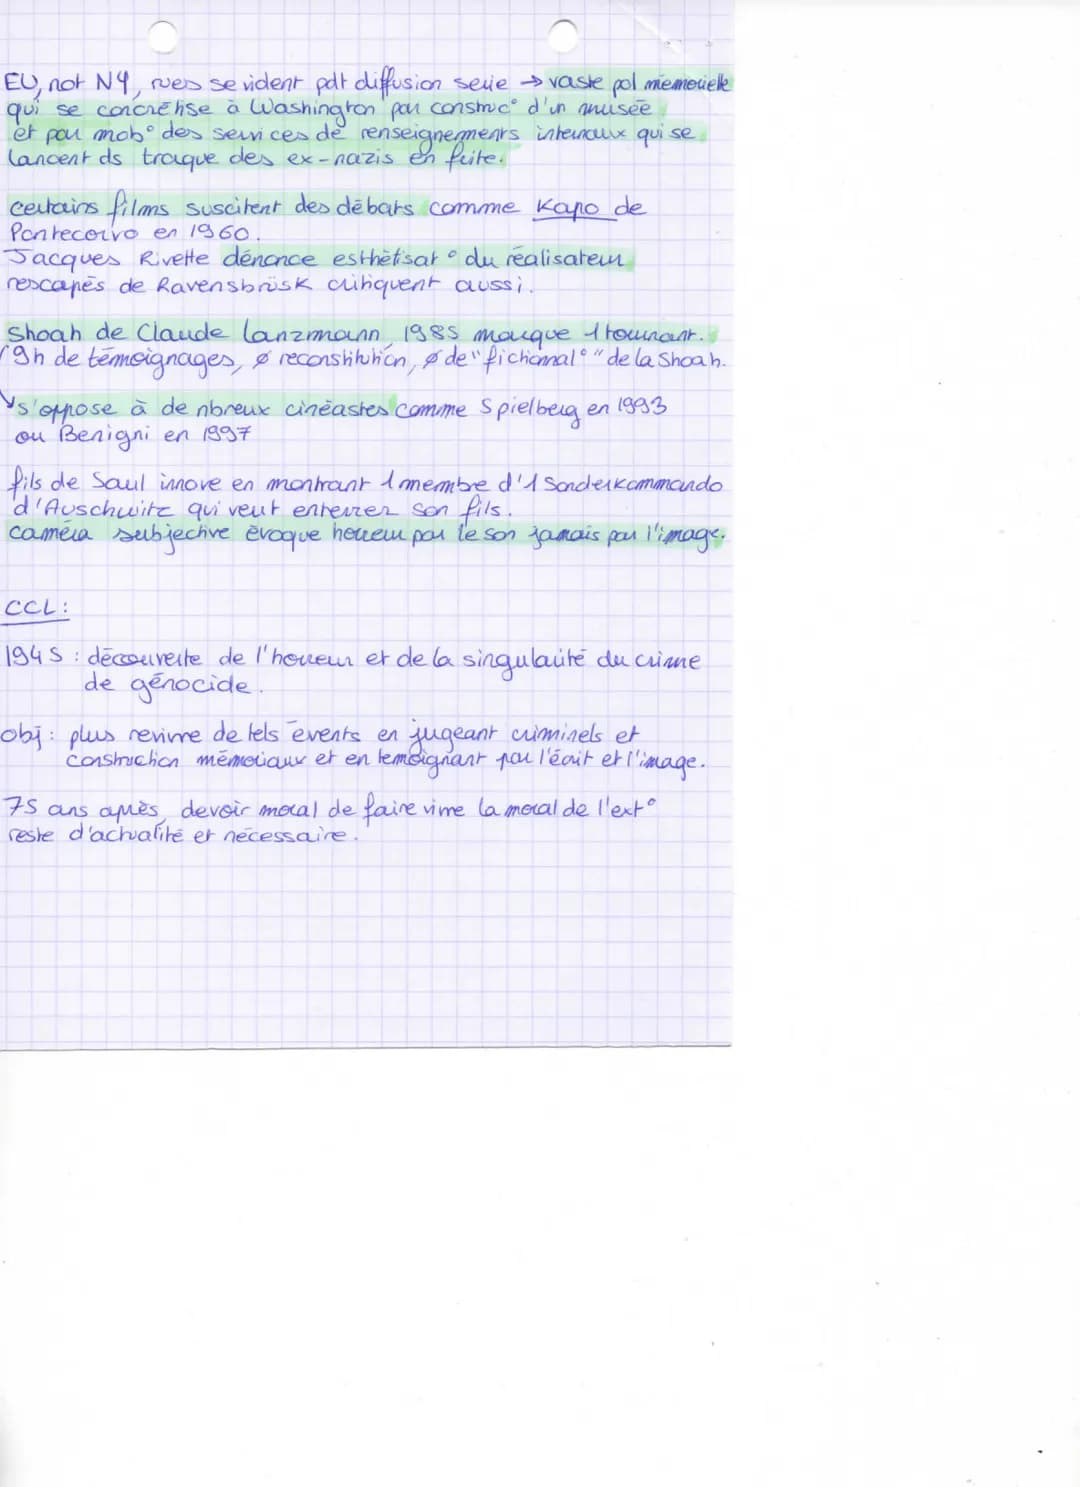 EU, not NY, rues se vident pdt diffusion serie → vaste pol mémorielle
qui se concrétise à Washington par construc° d'un musée
et par mob° des services de renseignements internaux qui se
lancent ds traque des ex-nazis en fuite.
certains films suscitent des débats comme Kapo de
Pontecorvo en 1960.
Jacques Rivette dénonce esthétisat° du réalisateur
rescapés de Ravensbrüsk critiquent aussi.
Shoah de Claude Lanzmann, 1985 marque 1 tournant.
9h de témoignages, ø reconstitution, ø de "fictionnal°" de la Shoah.
s'oppose à de nbreux cinéastes comme Spielberg en 1993
ou Benigni en 1997
fils de Saul innove en montrant 1 membre d'1 Sonderkommando
d'Auschwitz qui veut enterrer son fils.
caméra subjective évoque horreur par le son jamais par l'image.
CCL :
1945 : découverte de l'horreur et de la singularité du crime
de génocide.
obj : plus revivre de tels évents en jugeant criminels et
construction mémoriaux et en temoignant par l'écrit et l'image.
75 ans après, devoir moral de faire vivre la moral de l'ext°
reste d'actualité et nécessaire.